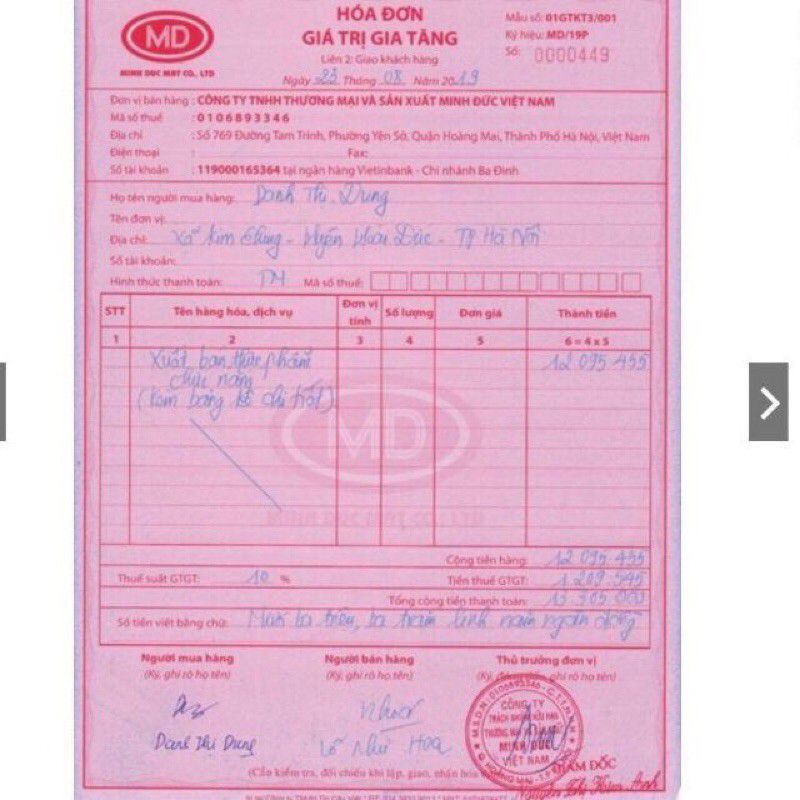 MD
MINH DUC MST CO., LTD
HÓA ĐƠN
GIÁ TRỊ GIA TĂNG
Liên 2: Giao khách hàng
Ngày 23 Tháng 08 Năm 2019
Mẫu số: 01GTKT3/001
Ký hiệu: MD/19P
Số: 0000449
Đơn vị bán hàng : CÔNG TY TNHH THƯƠNG MẠI VÀ SẢN XUẤT MINH ĐỨC VIỆT NAM
Mã số thuế : 0106893346
Địa chỉ : Số 769 Đường Tam Trinh, Phường Yên Sở, Quận Hoàng Mai, Thành Phố Hà Nội, Việt Nam
Điện thoại : Fax:
Số tài khoản : 119000165364 tại ngân hàng Vietinbank - Chi nhánh Ba Đình
Họ tên người mua hàng: Danh Thị Dung
Tên đơn vị:
Địa chỉ: Xã Kim Chung - Huyện Hoài Đức - TP Hà Nội
Số tài khoản:
Hình thức thanh toán: TM Mã số thuế:
STT Tên hàng hóa, dịch vụ Đơn vị tính Số lượng Đơn giá Thành tiền
1 2 3 4 5 6 = 4 x 5
Xuất bán thực phẩm 12 095 455
chức năng
(kèm bảng kê chi tiết)
MD
Cộng tiền hàng: 12 095 455
Thuế suất GTGT: 10 % Tiền thuế GTGT: 1 209 545
Tổng cộng tiền thanh toán: 13 305 000
Số tiền viết bằng chữ: Mười ba triệu, ba trăm linh năm ngàn đồng
Người mua hàng Người bán hàng Thủ trưởng đơn vị
(Ký, ghi rõ họ tên) (Ký, ghi rõ họ tên) (Ký, đóng dấu, ghi rõ họ tên)
Danh Thị Dung Như Hoa
CÔNG TY
TRÁCH NHIỆM HỮU HẠN
MINH ĐỨC
VIỆT NAM
GIÁM ĐỐC
(Cần kiểm tra, đối chiếu khi lập, giao, nhận hóa